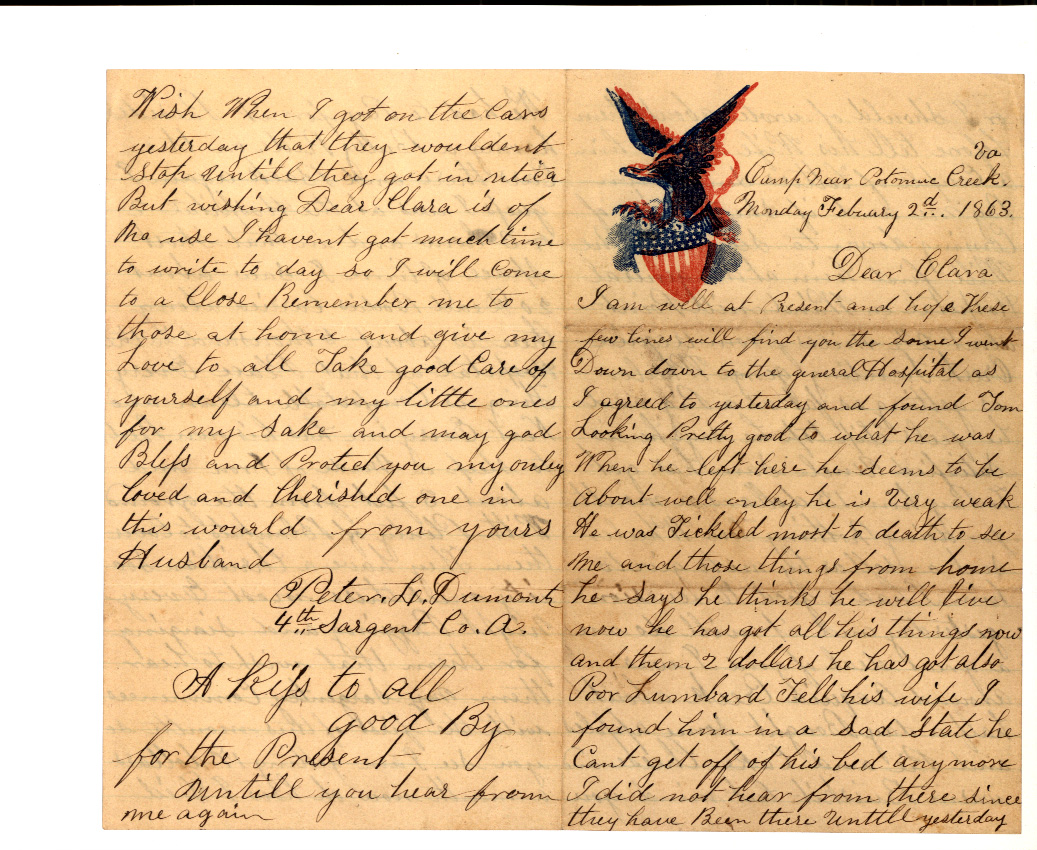 Va
Camp Near Potomac Creek.
Monday Febuary 2d.. 1863.
Dear Clara
I am well at Present and hope These
few lines will find you the same I went
Down down to the general Hospital as
I agreed to yesterday and found Tom
Looking Pretty good to what he was
When he left here he seems to be
About well onley he is Very weak
He was Tickeled most to death to see
me and those things from home
he says he thinks he will live
now he has got all his things now
and them 2 dollars he has got also
Poor Lumbard Tell his wife I
found him in a Sad State he
Cant get off of his bed anymore
I did not hear from there since
they have Been there Untill yesterday
Wish When I got on the Cars
yesterday that they wouldent
Stop Untill they got in utica
But wishing Dear Clara is of
No use I havent got much time
to write to day so I will Come
to a Close Remember me to
those at home and give my
Love to all Take good Care of
yourself and my little ones
for my Sake and may god
Bless and Protect you my onley
loved and Cherished one in
this wourld from yours
Husband
Peter. L. Dumont
4th.. Sargent Co. A.
A Kiss to all
good By
for the Present
Untill you hear from
me again